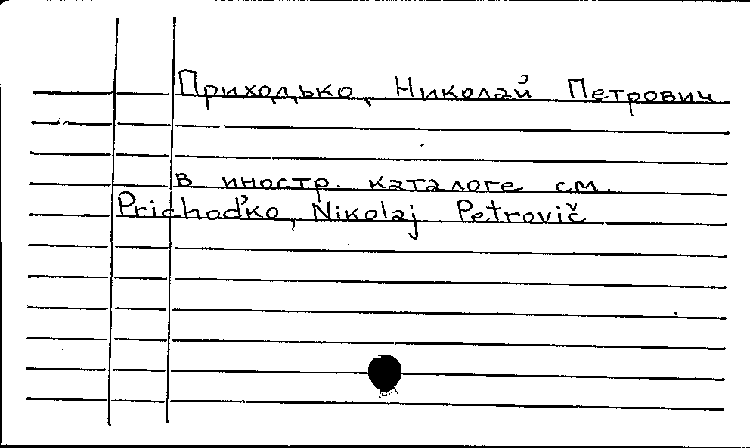 Приходько, Николай Петрович
в иностр. каталоге см.
Prichod'ko, Nikolaj Petrovič